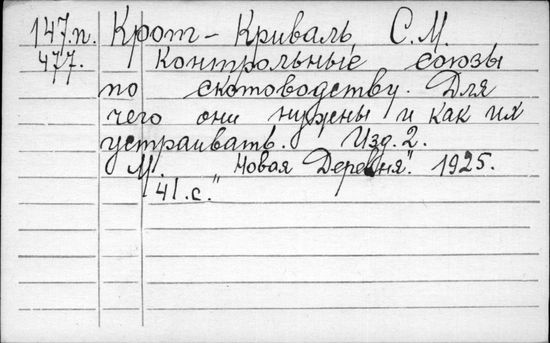 147.п. Крот - Криваль С.М.
477. Контрольные союзы
по скотоводству. Для
чего они нужены и как их
устраивать. Изд. 2.
М. "Новая Деревня". 1925.
41.с.